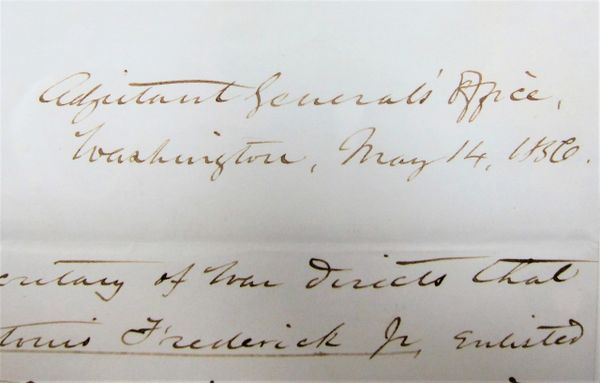 Adjutant General's Office,
Washington, May 14, 1886.
cretary of War directs that
Frederick Jr, enlisted